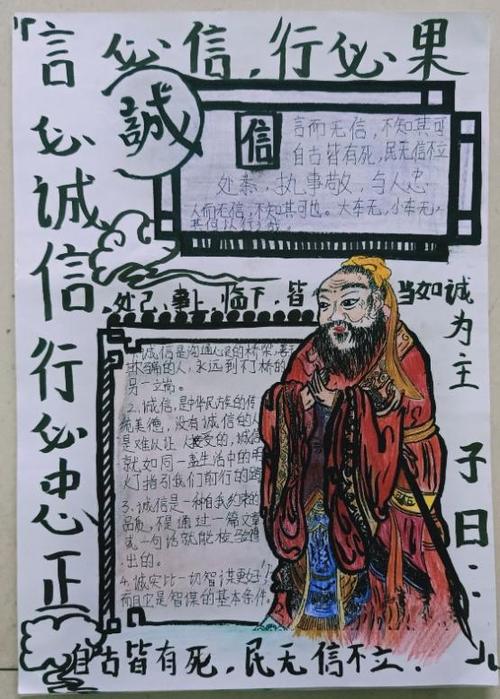 「言必信,行必果
必诚信行必忠正
誠
信
言而无信,不知其可
自古皆有死,民无信不立
处恭,执事敬,与人忠
人而无信,不知其可也。大车无,小车无,
其何以行之哉。
处己、事上、临下,皆
当如诚为主
子曰::
1.诚信是沟通心灵的桥梁,善于
的人,永远到不了桥的
另一端。
2.诚信,是中华民族的传
统美德,没有诚信的人
是难以让人接受的,诚信
就如同一盏生活中的明
灯指引我们前行的路
3.诚信是一种自我约束的
品质,不是通过一篇文章
或一句话就能检验得
出的。
4.诚实比一切智谋更好,
而且它是智谋的基本条件。
自古皆有死,民无信不立.」